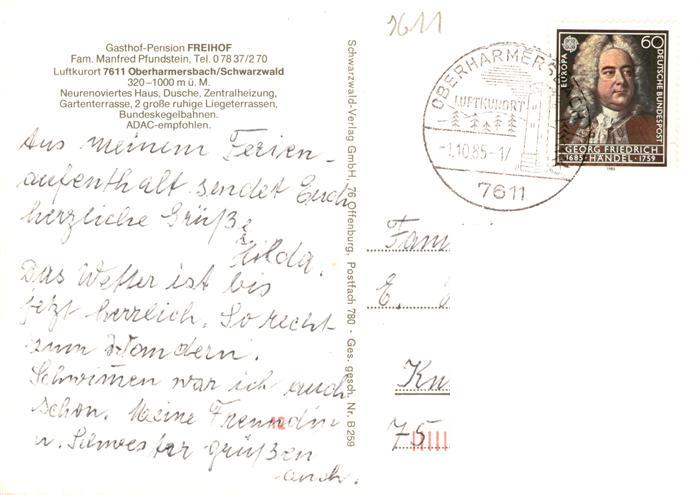 7611
Gasthof-Pension FREIHOF
Fam. Manfred Pfundstein, Tel. 0 78 37/2 70
Luftkurort 7611 Oberharmersbach/Schwarzwald
320–1000 m ü. M.
Neurenoviertes Haus, Dusche, Zentralheizung,
Gartenterrasse, 2 große ruhige Liegeterrassen,
Bundeskegelbahnen.
ADAC-empfohlen.
Aus meinem Ferien-
aufenthalt sendet Euch
herzliche Grüße
Hilda.
Das Wetter ist bis
jetzt herrlich. So recht
zum Wandern.
Schwimmen war ich auch
schon. Meine Freundin
u. Schwester grüßen
auch.
Schwarzwald-Verlag GmbH, 76 Offenburg, Postfach 780 · Ges. gesch. Nr. B 259
LUFTKURORT
-1.10.85-17
7611
EUROPA
60
DEUTSCHE BUNDESPOST
GEORG FRIEDRICH
1685 · HÄNDEL · 1759
Fam
E.
Kn
75